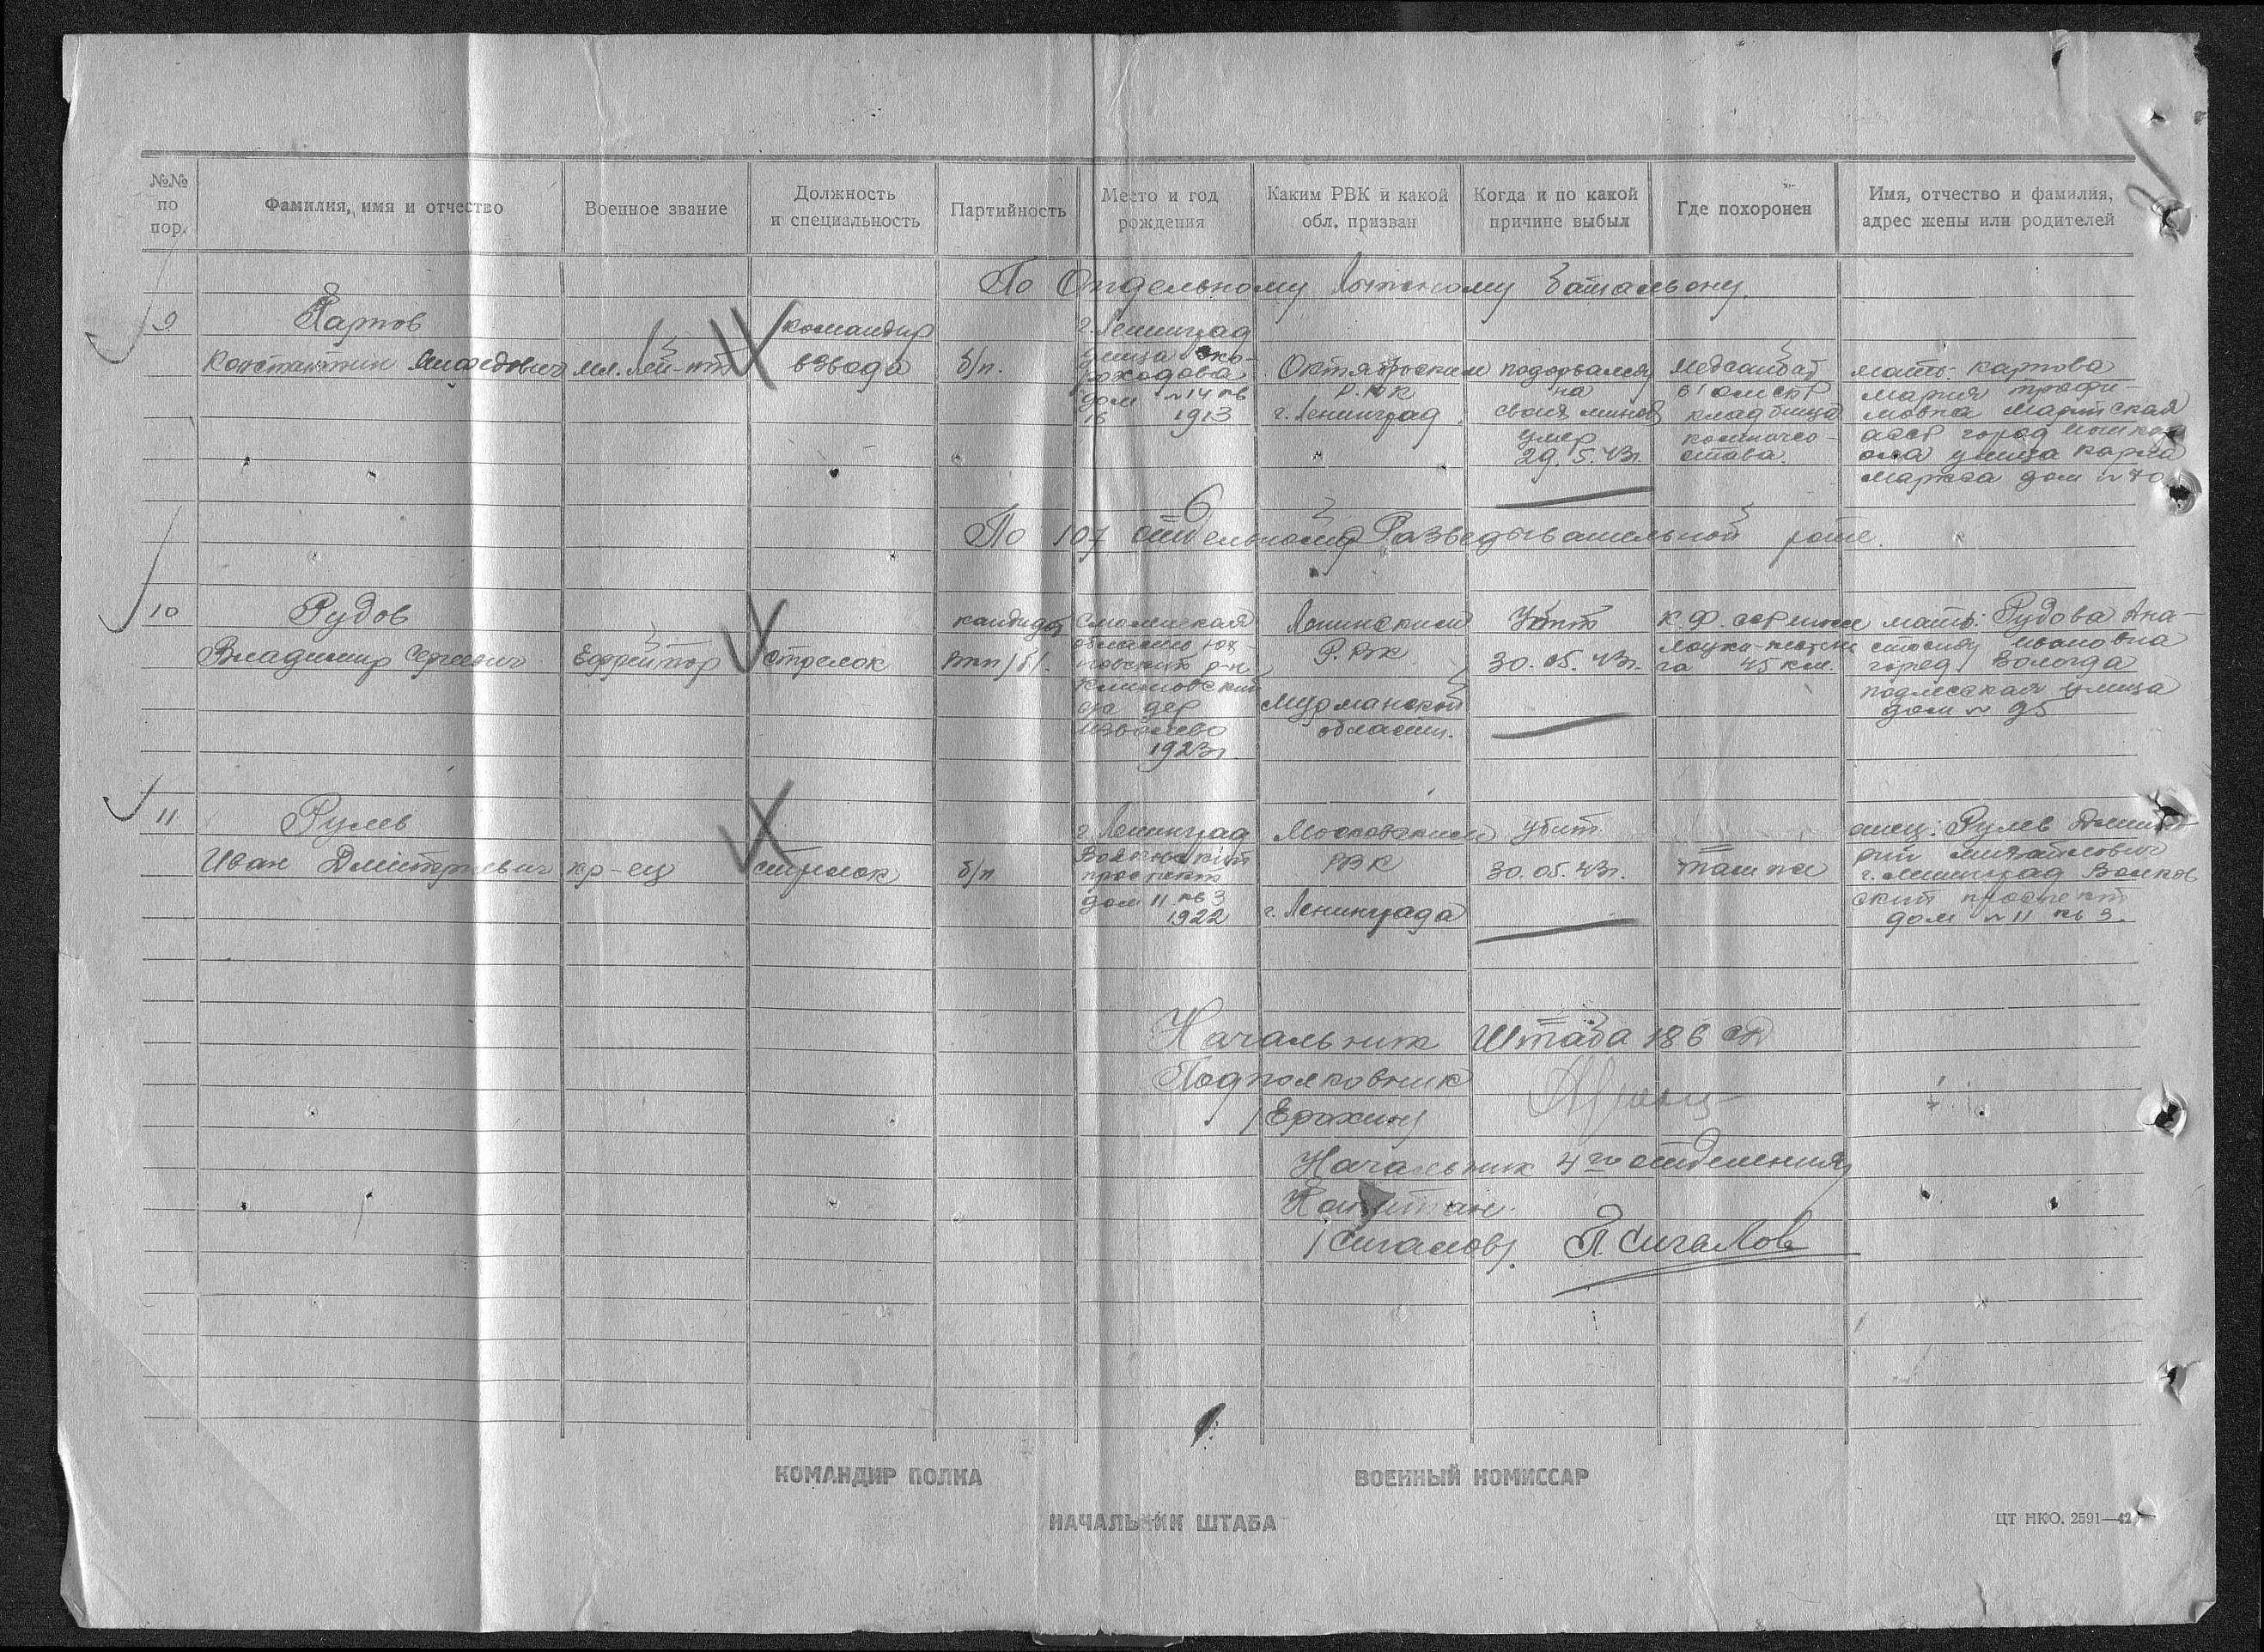 №№ по пор.
Фамилия, имя и отчество
Военное звание
Должность и специальность
Партийность
Место и год рождения
Каким РВК и какой обл. призван
Когда и по какой причине выбыл
Где похоронен
Имя, отчество и фамилия, адрес жены или родителей
По Отдельному Лыжному батальону.
9
Карпов
Константин
мл. лей-нт
командир
взвода
б/п.
г. Ленинград
улица Ско-
роходова
дом №14 кв
16 1913
Октябрьским
Р.В.К
г. Ленинград
подорвался
на
своей мине
умер
29.5.43г.
Медсанбат
кладбище
комначсо-
става.
мать: Карпова
Мария Трофи-
мовна Марийская
АССР город Йошкар
Ола улица Карла
Маркса дом №70
По 107 отдельной Разведывательной роте.
10
Рудов
Владимир Сергеевич
Ефрейтор
стрелок
кандидат
ВКП/б/.
Смоленская
область Юх-
новский р-н
Климовский
с/с дер
1923г.
Ленинским
Р.ВК
Мурманской
области.
Убит
30.05.43г.
К.Ф.ССР
45 км.
мать: Рудова Ана-
стасия Ивановна
город Вологда
подлесная улица
дом № 95
11
Рулев
Иван Дмитриевич
кр-ец
стрелок
б/п
г. Ленинград
Волковский
проспект
дом 11 кв 3
1922
Московским
РВК
г. Ленинграда
убит
30.05.43г.
там же
отец: Рулев Дмит-
рий Михайлович
г. Ленинград Волков
ский проспект
дом №11 кв 3.
Начальник Штаба 186 сд
Подполковник
/Ерохин/
Начальник 4го отделения
Капитан
/Сигалов/. П Сигалов
КОМАНДИР ПОЛКА
ВОЕННЫЙ КОМИССАР
НАЧАЛЬНИК ШТАБА
ЦТ НКО. 2591—42